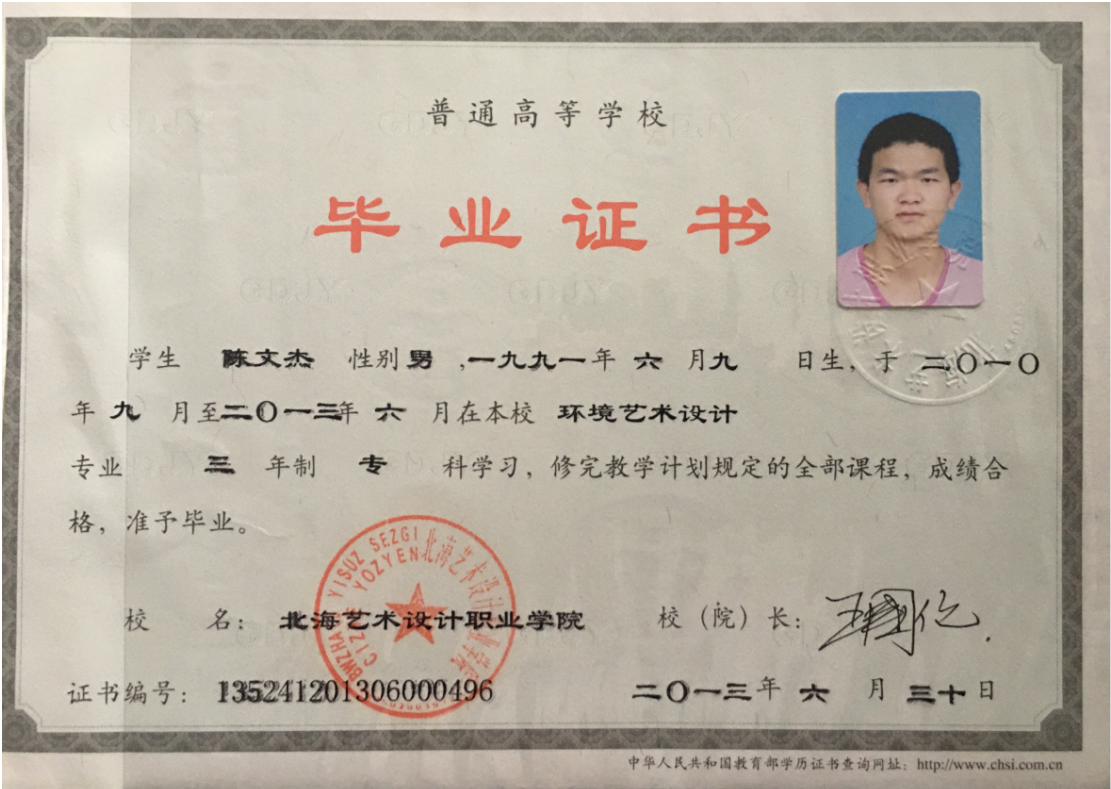 普通高等学校
毕业证书
学生 陈文杰 性别 男 ,一九九一年 六 月九 日生, 于 二〇一〇
年 九 月至二〇一三年 六 月在本校 环境艺术设计
专业 三 年制 专 科学习, 修完教学计划规定的全部课程, 成绩合
格, 准予毕业。
BWZHAIJ YISUZ SEZGI 北海艺术设计职业学院
CIZYE YOZYEN
校 名: 北海艺术设计职业学院 校(院)长:
证书编号: 135241201306000496 二〇一三年 六 月 三十日
中华人民共和国教育部学历证书查询网址: http://www.chsi.com.cn